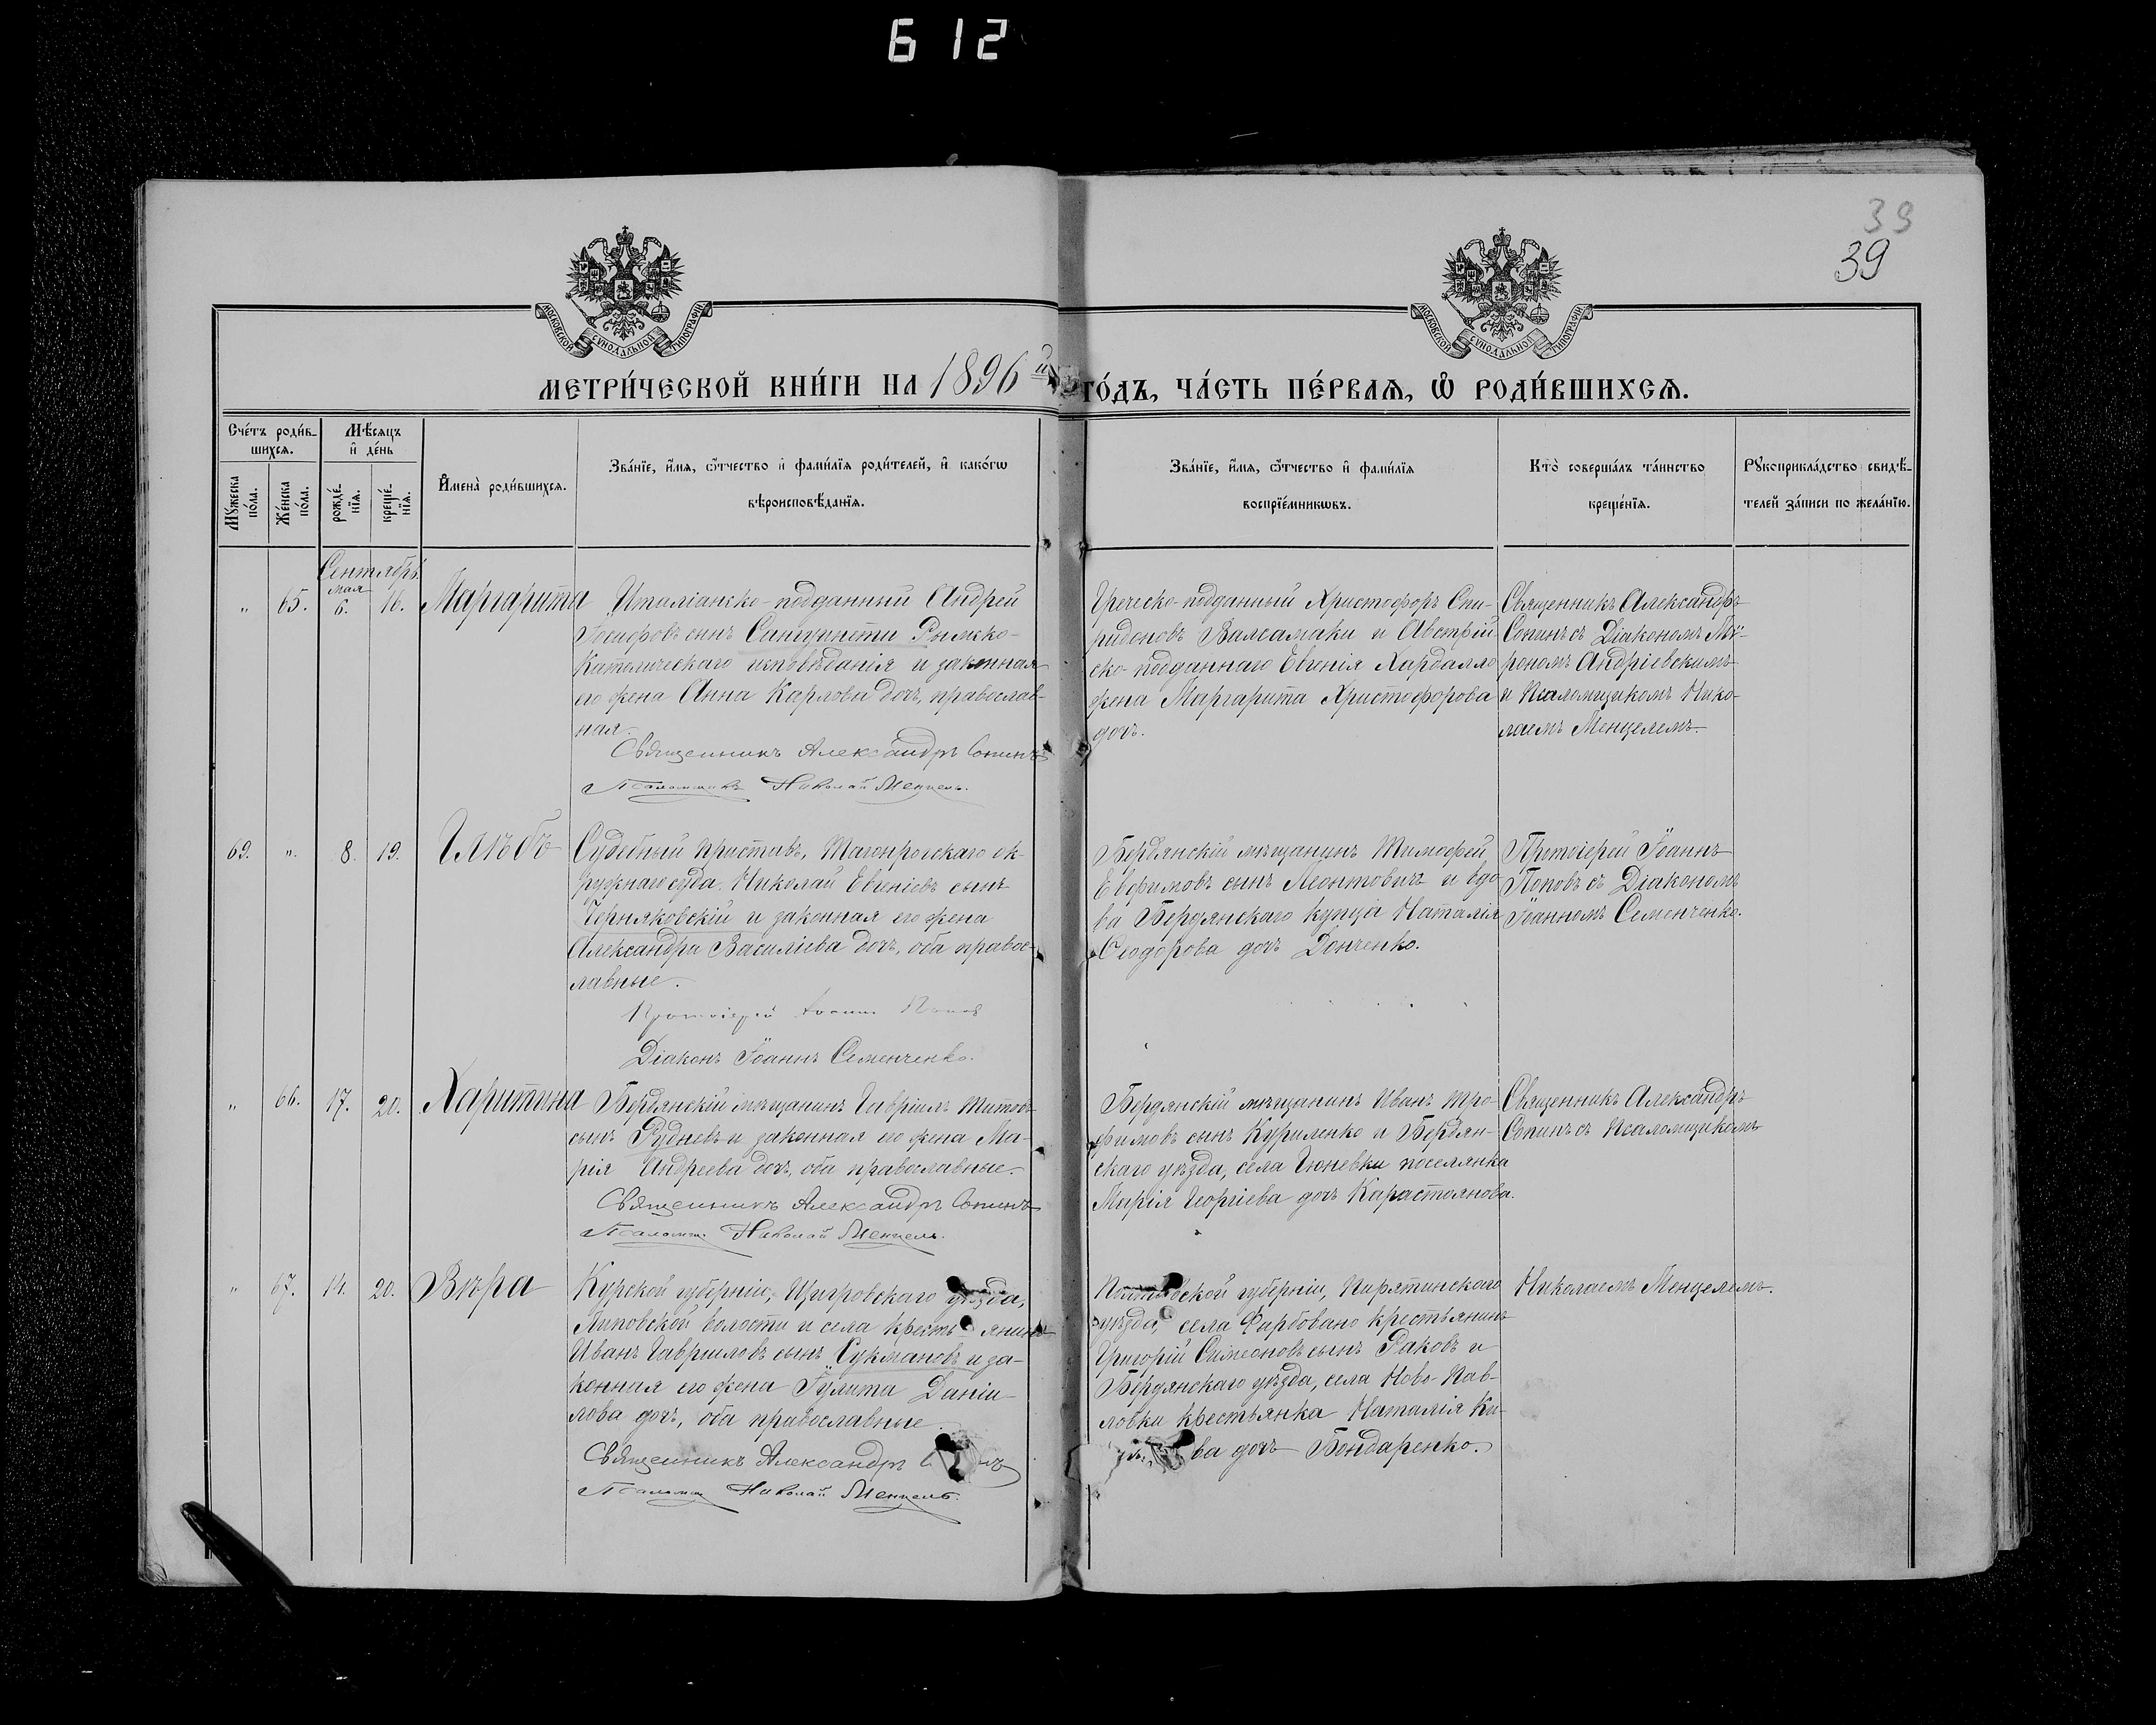 612
39
39
МОСКОВСКОЙ СѴНОДАЛЬНОЙ ТИПОГРАФІИ
МОСКОВСКОЙ СѴНОДАЛЬНОЙ ТИПОГРАФІИ
МЕТРИ́ЧЕСКОЙ КНИ́ГИ НА 1896й ГО́ДЪ, ЧА́СТЬ ПЕ́РВАЯ, Ѡ РОДИ́ВШИХСЯ.
Сче́тъ роди́в-
шихся.
Му́жеска по́ла.
Же́нска по́ла.
Мѣ́сяцъ
и де́нь
рожде́-
нїя.
креще́-
нїя.
Имена̀ роди́вшихся.
Зва́нїе, и́мя, ѻ́тчество и фами́лїя роди́телей, и како́гѡ
вѣроисповѣ́данїя.
Зва́нїе, и́мя, ѻ́тчество и фами́лїя
воспрїе́мникѡвъ.
Кто̀ соверша́лъ та́инство
креще́нїя.
Рукоприкла́дство свидѣ́-
телей за́писи по жела́нїю.
Сентябрь.
мая
„ 65. 6. 16. Маргарита
Италіанско-подданный Андрей
Іосифовъ сынъ Римско-
Католическаго исповѣданія и законная
его жена Анна Карлова дочь, православ-
ная.
Священникъ Александръ Сопинъ
Псаломщикъ Николай Менцель.
Греческо-подданный Христофоръ Спи-
ридоновъ Валсамаки и Австрій-
ско-подданнаго Евгенія Хардалло
жена Маргарита Христофорова
дочь.
Священникъ Александръ
Сопинъ съ Діакономъ Мѵ-
рономъ Андріевскимъ
и Псаломщикомъ Нико-
лаемъ Менцелемъ.
69. „ 8. 19. Глѣбъ
Судебный приставъ, Таганрогскаго ок-
ружнаго суда, Николай Евгеніевъ сынъ
Черняковскій и законная его жена
Александра Василіева дочь, оба правос-
лавные.
Протоіерей Іоаннъ Поповъ
Діаконъ Іоаннъ Семенченко.
Бердянскій мѣщанинъ Тимофей
Евфимовъ сынъ Леонтовичъ и вдо-
ва Бердянскаго купца Наталія
Ѳеодорова дочь Донченко.
Протоіерей Іоаннъ
Поповъ съ Діакономъ
Іоанномъ Семенченко.
„ 66. 17. 20. Харитина
Бердянскій мѣщанинъ Гавріилъ Титовъ
сынъ Рудневъ и законная его жена Ма-
рія Андреева дочь, оба православные.
Священникъ Александръ Сопинъ
Псаломщ. Николай Менцель.
Бердянскій мѣщанинъ Иванъ Тро-
фимовъ сынъ Куриленко и Бердян-
скаго уѣзда, села Гюневки поселянка
Марія Георгіева дочь Карастоянова.
Священникъ Александръ
Сопинъ съ Псаломщикомъ
„ 67. 14. 20. Вѣра
Курской губерніи, Щигровскаго уѣзда,
Липовской волости и села крестьянинъ
Иванъ Гавриловъ сынъ Сукмановъ и за-
конная его жена Іулита Даніи-
лова дочь, оба православные.
Священникъ Александръ
Псаломщ Николай Менцель.
Полтавской губерніи, Пирятинскаго
уѣзда, села Фарбовано крестьянинъ
Григорій Симеоновъ сынъ Раковъ и
Бердянскаго уѣзда, села Ново-Пав-
ловки крестьянка Наталія Ки-
ва дочь Бондаренко.
Николаемъ Менцелемъ.